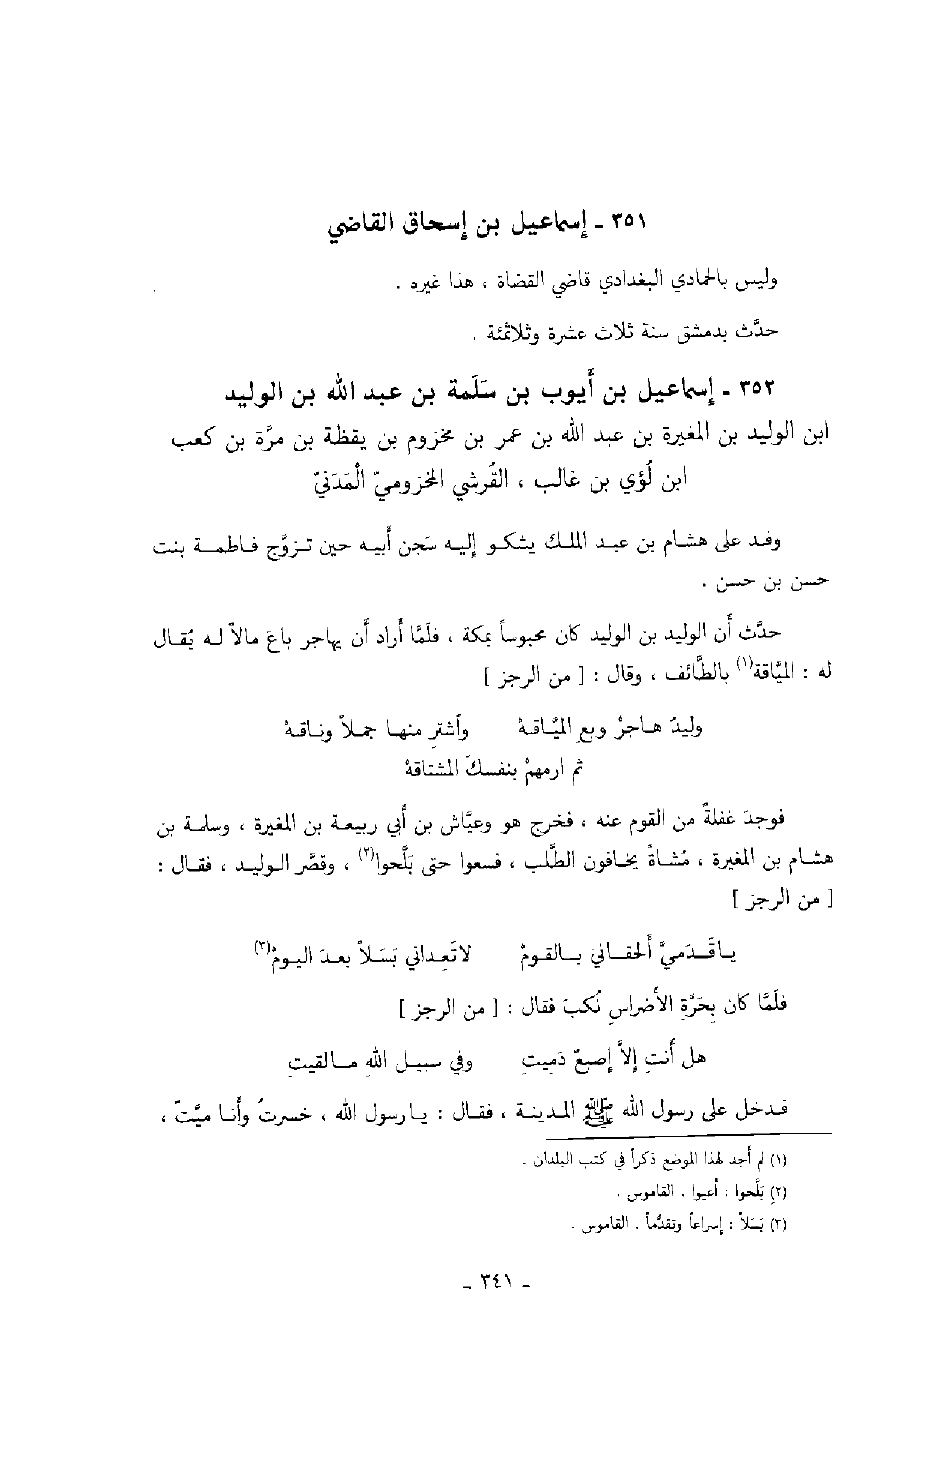 ٣٥١ - إسماعيل بن إسحاق القاضي
وليس بالحمادي البغدادي قاضي القضاة ، هذا غيره .
حدَّث بدمشق سنة ثلاث عشرة وثلاثمئة .
٣٥٢ - إسماعيل بن أيوب بن سَلَمة بن عبد الله بن الوليد
ابن الوليد بن المغيرة بن عبد الله بن عمر بن مخزوم بن يقظة بن مرَّة بن كعب
ابن لُؤي بن غالب ، القُرشي المخزوميّ الْمَدَنيّ
وفد على هشام بن عبد الملك يشكو إليه سَجن أبيه حين تزوَّج فاطمة بنت
حسن بن حسن .
حدَّث أن الوليد بن الوليد كان محبوساً بمكة ، فلمَّا أراد أن يهاجر باعَ مالاً له يُقال
له : الميَّاقة(١) بالطَّائف ، وقال : [ من الرجز ]
وليدُ هاجرْ وبعِ الميَّاقهْ وأشترِ منها جملاً وناقهْ
ثم ارمهمْ بنفسكَ المشتاقهْ
فوجدَ غفلةً من القوم عنه ، فخرج هو وعيَّاش بن أبي ربيعة بن المغيرة ، وسلمة بن
هشام بن المغيرة ، مُشاةً يخافون الطَّلب ، فسعوا حتى بَلَّحوا(٢) ، وقصَّر الوليد ، فقال :
[ من الرجز ]
ياقَدَميَّ ألحقاني بالقومْ لاتَعِداني بَسَلاً بعدَ اليومْ(٣)
فلَمَّا كان بِحَرَّةِ الأضراسِ نُكبَ فقال : [ من الرجز ]
هل أنتِ إلاَّ إصبعٌ دَمِيتِ وفي سبيل اللهِ مالقيتِ
فدخل على رسول الله ﷺ المدينة ، فقال : يارسول الله ، خسرتُ وأنا ميِّتٌ ،
(١) لم أجد لهذا الموضع ذكراً في كتب البلدان .
(٢) بَلَّحوا : أعيوا . القاموس .
(٣) بَسَلاً : إسراعاً وتقدُّماً . القاموس .
- ٣٤١ -